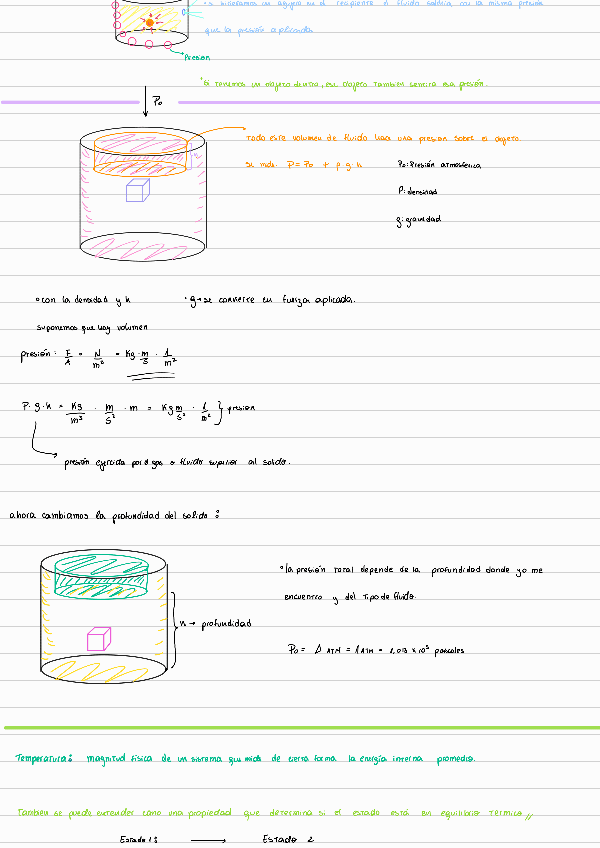 si hacemos un agujero en el recipiente el fluido saldría con la misma presión
que la presión aplicada.
Presion
°Si tenemos un objeto dentro, ese objeto también sentira esa presión.
P₀
Todo este volumen de fluido hara una presion sobre el objeto.
se mide: P = P₀ + ρ · g · h
P₀: Presión atmosferica
ρ: densidad
g: gravedad
°con la densidad y h
°g → se convierte en fuerza aplicada.
suponemos que hay volumen
presión: F/A = N/m² = Kg · m/s · 1/m²
P · g · h = Kg/m³ · m/s² · m = Kg m/s² · 1/m² } presion
presión ejercida por el gas o fluido superior al solido.
ahora cambiamos la profundidad del solido:
°la presión total depende de la profundidad donde yo me
encuentro y del tipo de fluido.
h → profundidad
P₀ = ATM = 1 ATM = 1,013 x 10⁵ pascales
Temperatura: magnitud fisica de un sistema que mide de cierta forma la energía interna promedio.
Tambien se puede entender como una propiedad que determina si el estado está en equilibrio termico //
Estado 1: → Estado 2